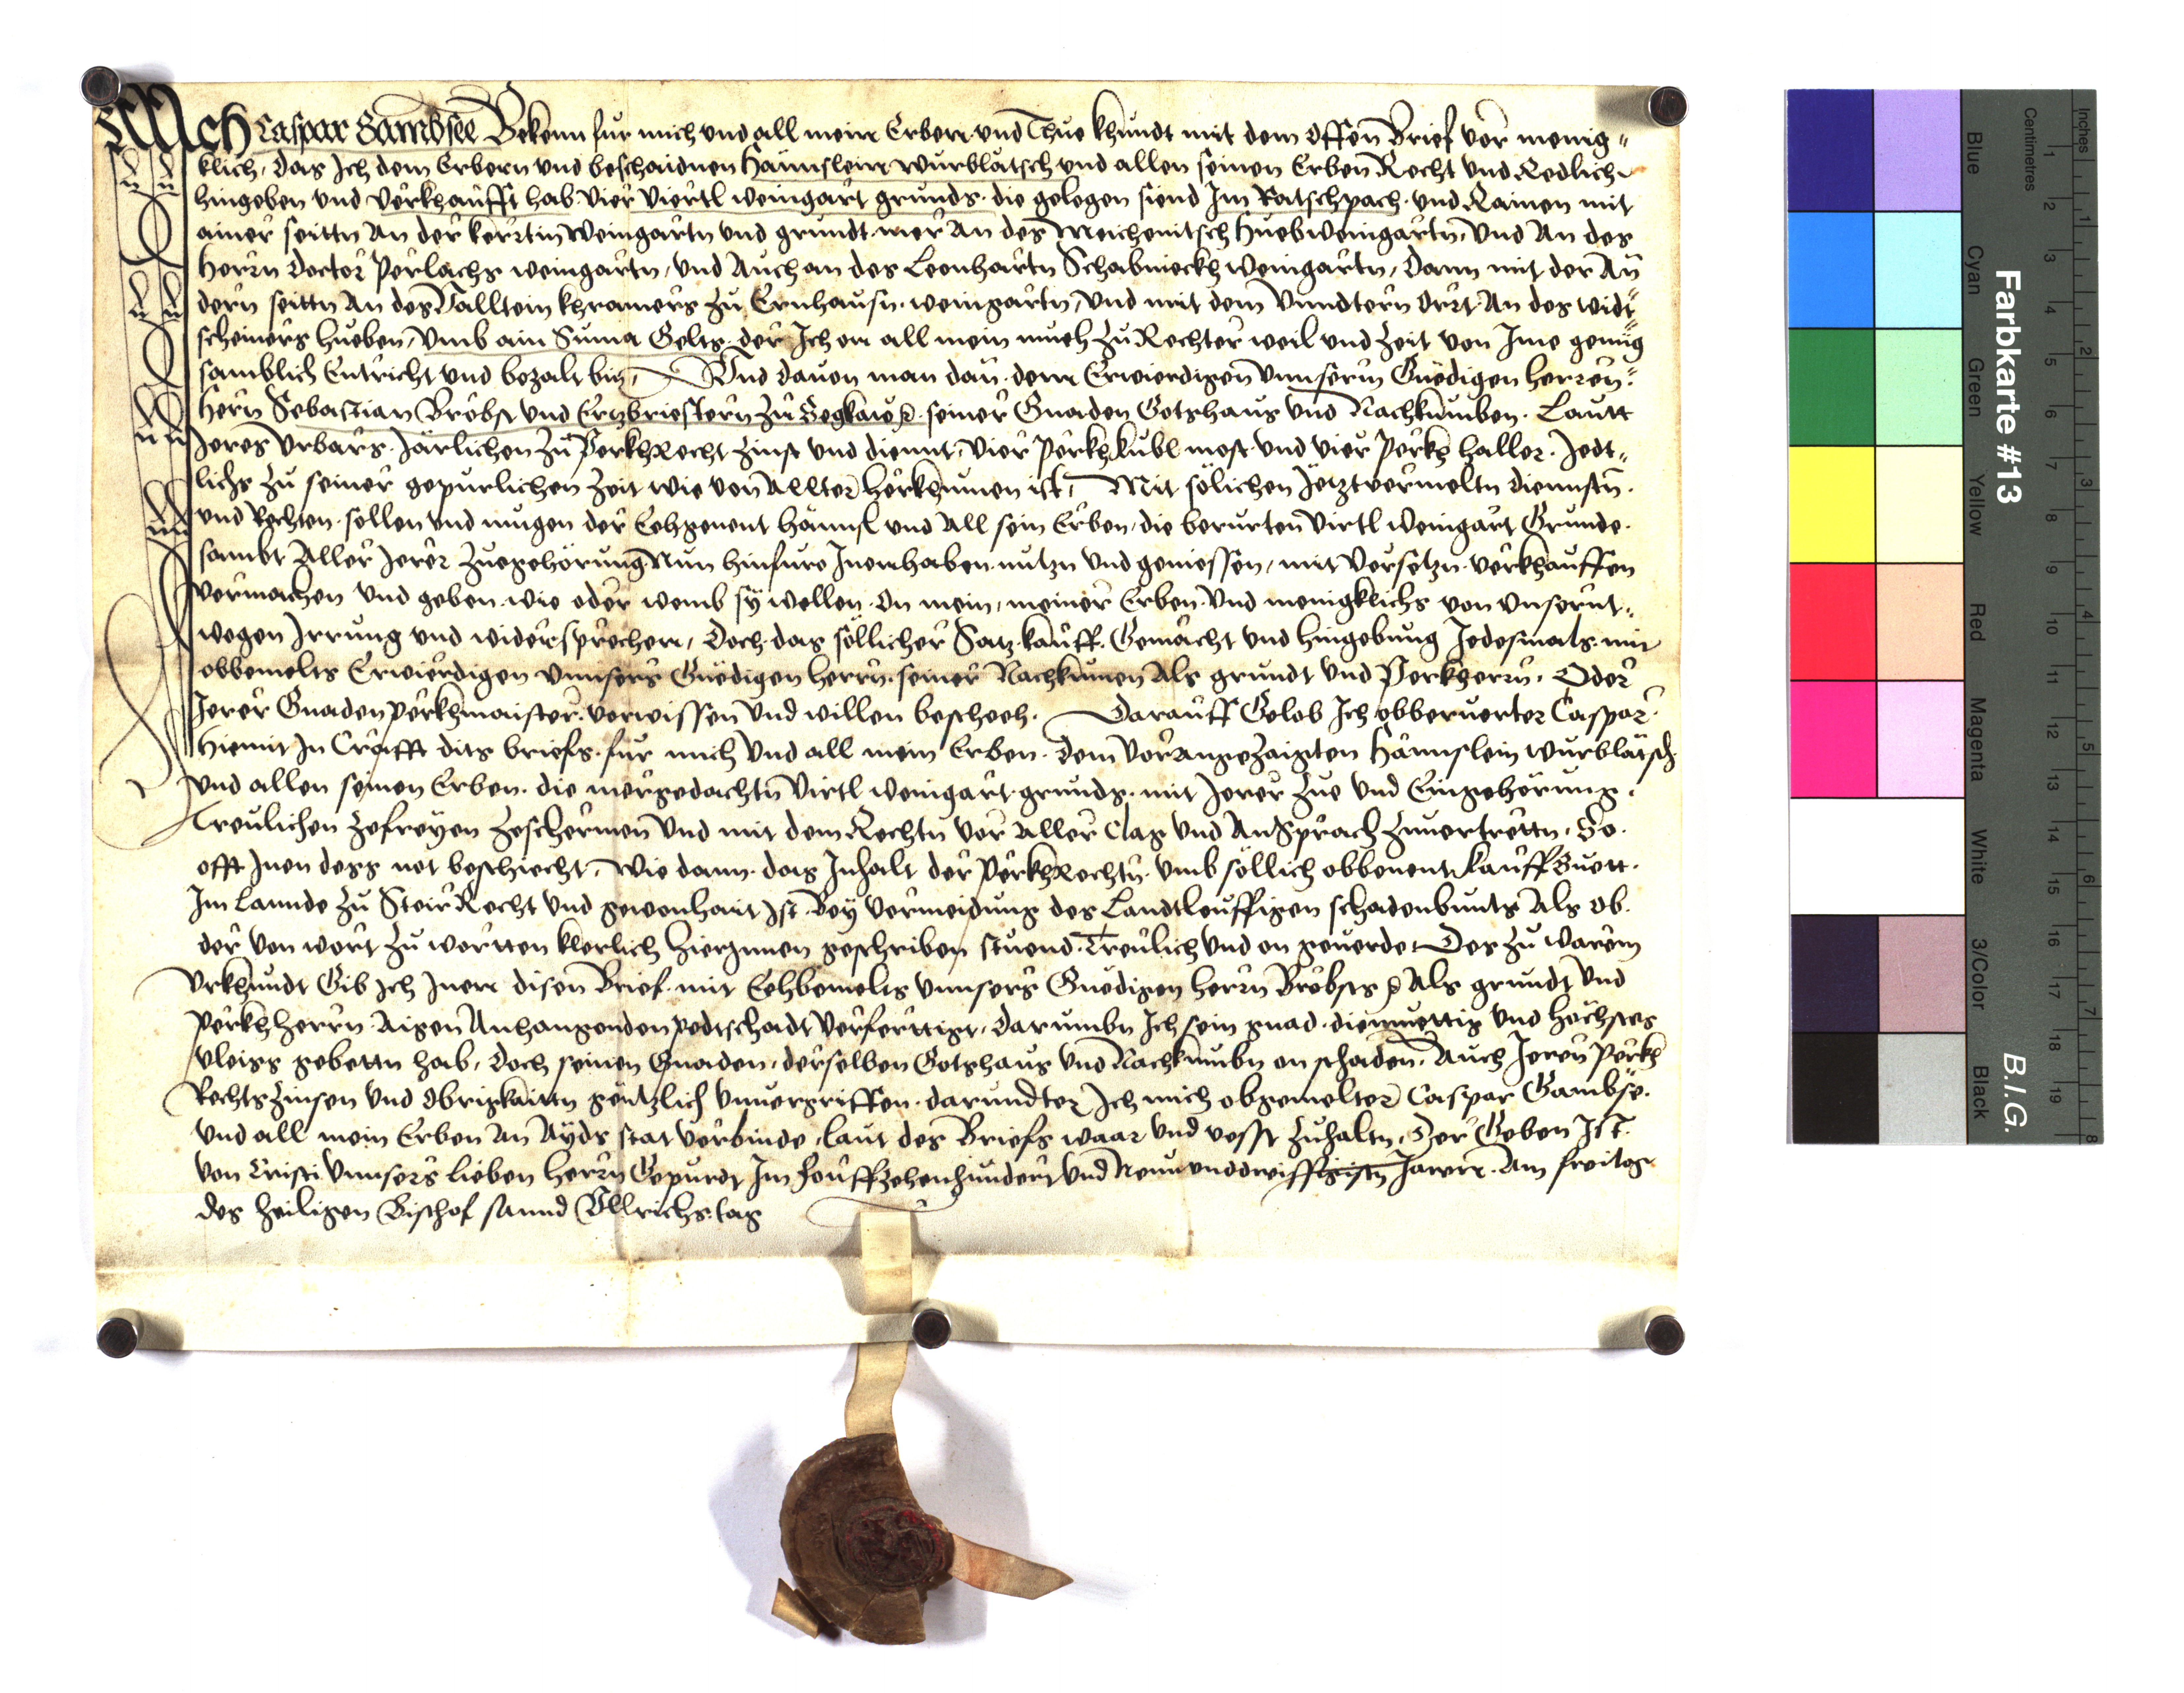 Ich Caspar Gambsee Bekenn fur mich vnd all mein Erben vnd Thue khundt mit dem offen Brief vor menig=
klich, das Ich dem Erbern vnd beschaidnen Hännslein wurblätsch vnd allen seinen Erben Recht vnd Redlich
hingeben vnd verkhaufft hab vier viertl weingart grunds. die gelegen siend Im Ratschpach. vnd Rainen mit
ainer seittn An der kerrtin weingartn vnd grundt. mer An des Meichenitsch Hueb weingartn, vnd An des
Herrn Doctor Perlachs weingartn, vnd Auch an des Leonhartn Schabnieckh weingartn, Dann mit der An
dern seittn An des Vallttein khramers zu Ernhausn. weingartn, vnd mit dem vnndtern Ort. An des widt=
scheiners hueben, vmb ain Suma Gelts. der Ich on all mein mueh zu Rechter weil vnd zeit von Ime genug
samblich Entricht vnd bezalt bin, Vnd dauon man dan. dem Erwierdigen vnnserm Gnedigen herren.
Hern Sebastian Brobst vnd Ertzbriestern zu Segkaw. seiner Gnaden Gotshaus vnd Nachkumben. Lautt
Ieres vrbars. Järlichen zu Perkhrecht zinst vnd diennt, vier Perkhkubl most. vnd vier Perkh haller. Jedt=
lichs zu seiner gepurlichen zeit wie von Allter herkhumen ist, Mit sölichen Jetztvermeltn diennstn.
vnd Rechten. sollen vnd mugen der Eehgenent Hännsl vnd All sein Erben, die berurten virtl weingart Grunde.
sambt Aller Jerer zuegehörung Nun hinfuro Innenhaben. nutzn vnd geniessen, mit versetzn. verkhauffen
vermachen vnd geben. wie oder wemb sy wellen. On mein, meiner Erben vnd menigklichs von vnsernt=
wegen Irrung vnd widersprechen, Doch das söllicher Satz. kauff. Gemächt vnd hingebung Jedesmals. mit
obbemelts Erwierdigen vnnsers Gnedigen herrn. seiner Nachkumen Als grundt vnd Perkherrn. Oder
Jerer Gnaden perkhmaister. vorwissen vnd willen bescheeh. Darauff Gelob Ich obberuerter Caspar.
Hiemit In Crafft dits briefs. fur mich vnd all mein Erben. dem vorangezaigten Hännslein wurblätsch
vnd allen seinen Erben. die mergedachtn virtl weingart. grunds. mit Jerer zue vnd Eingehörung.
Treulichen zefreyen zeschermen vnd mit dem Rechtn vor aller Clag vnd Ansprach zuuertrettn, So.
offt Inen dess not beschiecht, wie dann. das Inhalt der Perkhrechtn. vmb söllich obbenent kauffguett.
Im Lannde zu Steir Recht vnd gewonhait Ist. Bey vermeidung des Landtleuffigen schadenbunts Als ob.
der von wort zu wortten klerlich hierinnen geschriben stuend. Treulich vnd on geuerde. Des zu warem
vrkhundt Gib Ich Inen disen Brief. mit Eehbemelts vnnsers Gnedigen herrn Brobsts Als grundt vnd
Perkhherrn Aigen Anhangenden pedtschadt verferttigt, darumbn Ich sein gnad. diemuettig vnd höchstes
vleiss gebettn hab, doch seinen Gnaden, derselben Gotshaus vnd Nachkumbn on schaden. Auch Jeren Perkh
Rechtszinsen vnd Obrigkaittn gentzlich vnuergriffen. darundter Ich mich obgemelter Caspar Gambse.
vnd all mein Erben An Ayds stat verbinde, laut des Briefs waar vnd vesst zuhaltn, Der Geben Ist
von Cristi vnnsers lieben herrn Gepurdt Im Fünffzehenhundert vnd Neunvnddreissigistn Jaren. Am freitag
des heiligen Bischof sannd Vllrichs. tag
Farbkarte #13
B.I.G.
Blue
Cyan
Green
Yellow
Red
Magenta
White
3/Color
Black
Centimetres
Inches
1 2 3 4 5 6 7 8 9 10 11 12 13 14 15 16 17 18 19
1 2 3 4 5 6 7 8